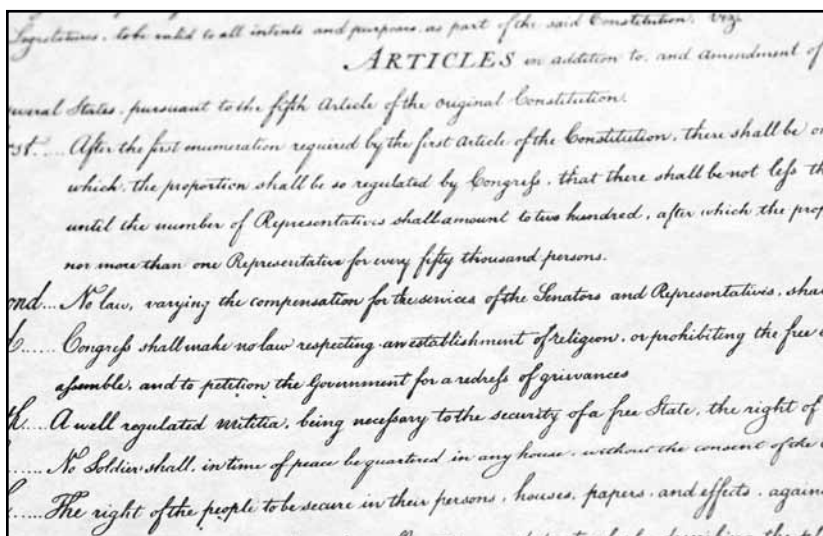 Legislatures, to be valid to all intents and purposes, as part of the said Constitution. viz.
ARTICLES in addition to, and Amendment of
several States, pursuant to the fifth Article of the original Constitution.
After the first enumeration required by the first Article of the Constitution, there shall be
which, the proportion shall be so regulated by Congress, that there shall be not less
until the number of Representatives shall amount to two hundred, after which the
nor more than one Representative for every fifty thousand persons.
No law, varying the compensation for the services of the Senators and Representatives,
Congress shall make no law respecting an establishment of religion, or prohibiting the free
assemble, and to petition the Government for a redress of grievances
A well regulated militia, being necessary to the security of a free State, the right of
No Soldier shall, in time of peace be quartered in any house, without the consent of the
The right of the people to be secure in their persons, houses, papers, and effects,